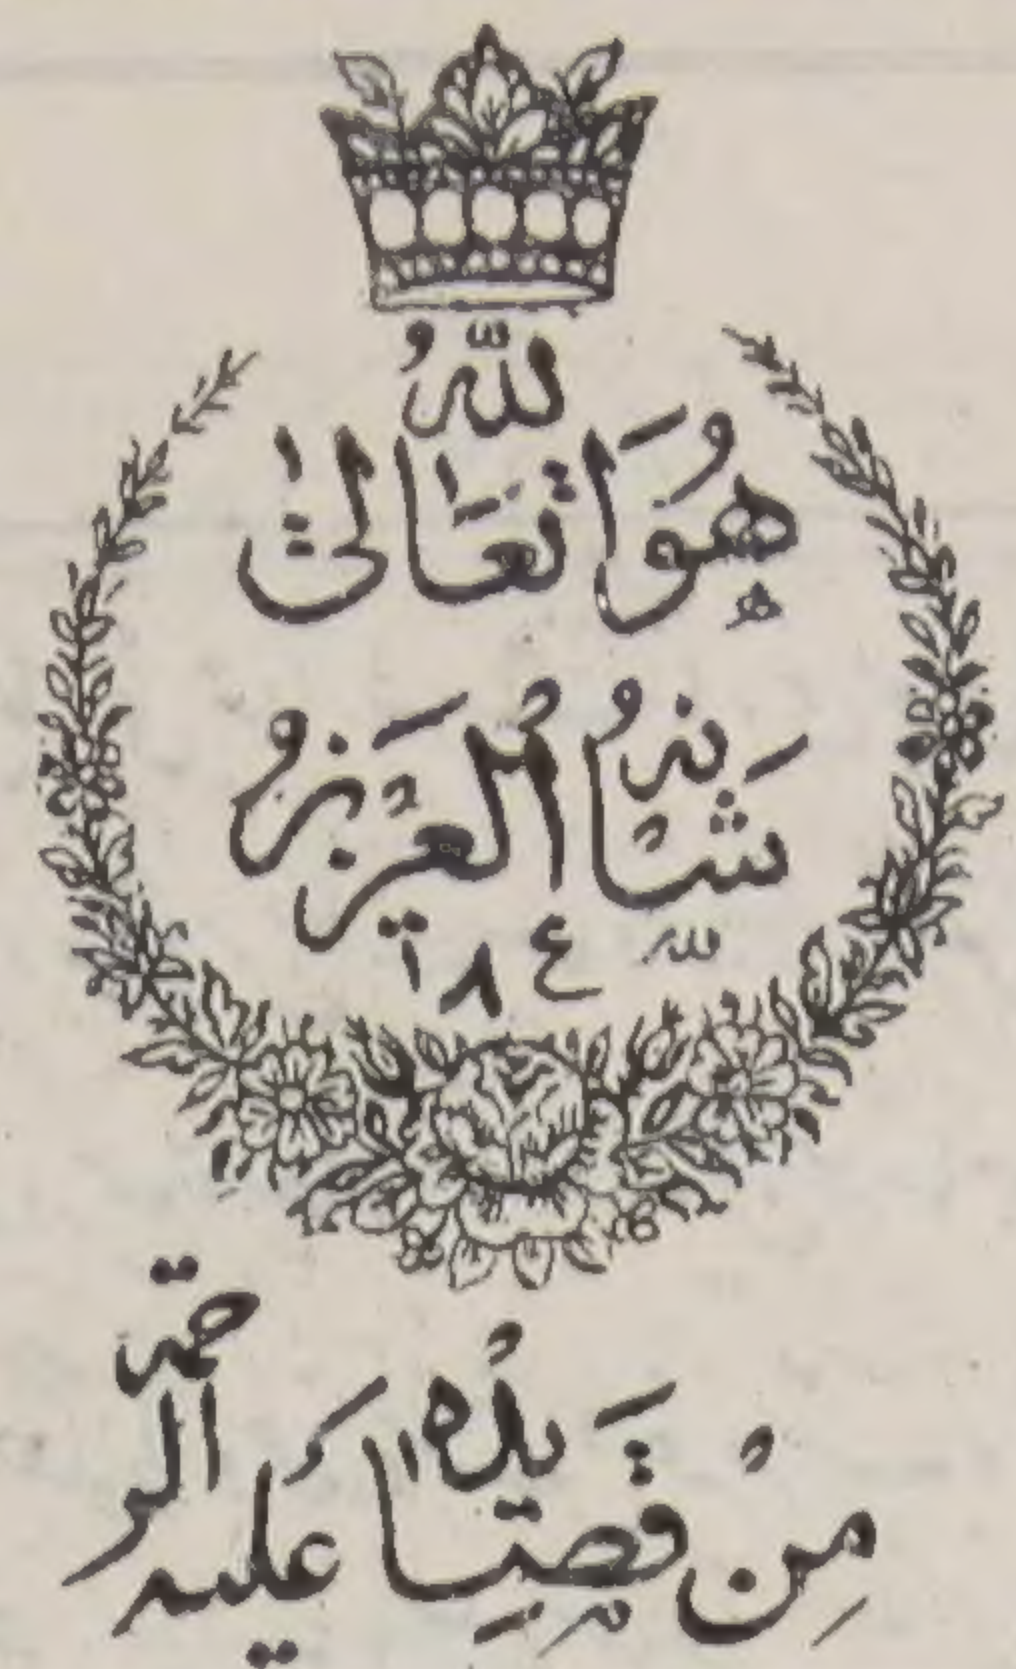 هُوَ اللّٰهُ تَعَالىٰ
شَانُهُ الْعَزِيزُ
١٨٤
مِنْ
عَلَيه الرحمة